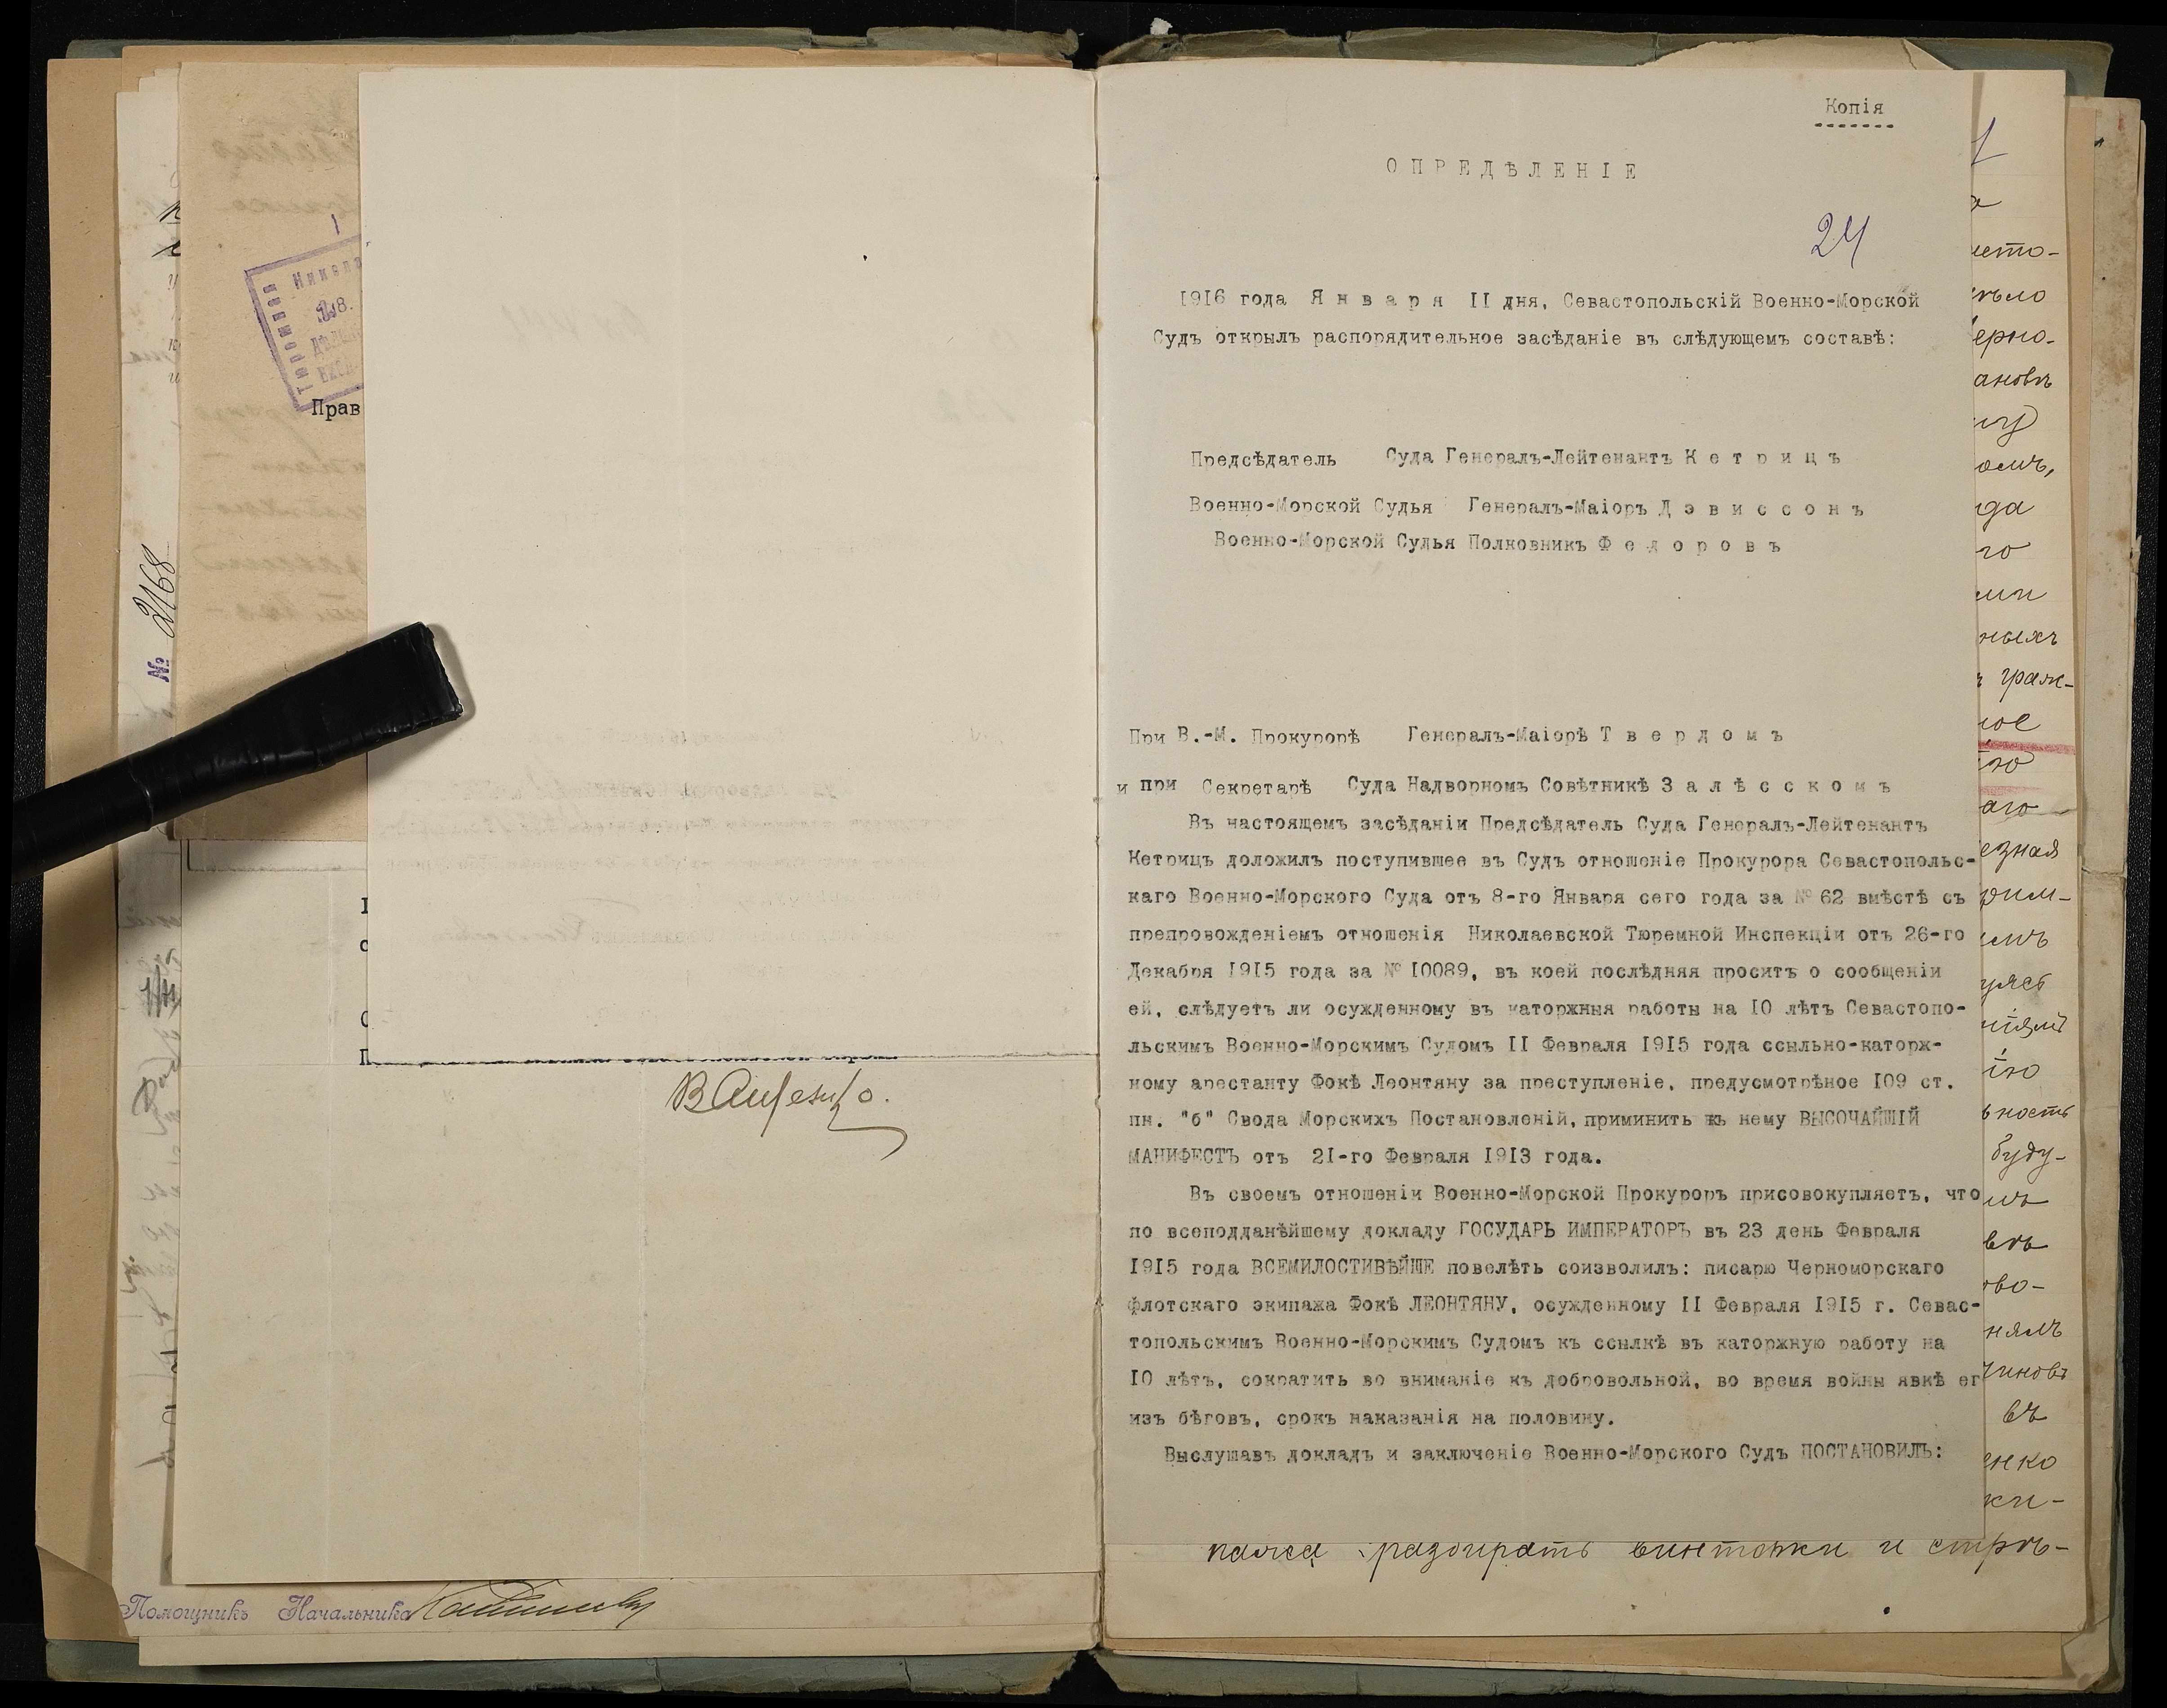 № 2168
Прав
Помощникъ Начальника
Копія
ОПРЕДѢЛЕНІЕ
24
1916 года Января II дня, Севастопольскій Военно-Морской
Судъ открылъ распорядительное засѣданіе въ слѣдующемъ составѣ:
Предсѣдатель Суда Генералъ-Лейтенантъ Кетрицъ
Военно-Морской Судья Генералъ-Маіоръ Дэвиссонъ
Военно-Морской Судья Полковникъ Федоровъ
При В.-М. Прокурорѣ Генералъ-Маіорѣ Твердомъ
и при Секретарѣ Суда Надворномъ Совѣтникѣ Залѣсскомъ
Въ настоящемъ засѣданіи Предсѣдатель Суда Генералъ-Лейтенантъ
Кетрицъ доложилъ поступившее въ Судъ отношеніе Прокурора Севастопольс-
каго Военно-Морского Суда отъ 8-го Января сего года за № 62 вмѣстѣ съ
препровожденіемъ отношенія Николаевской Тюремной Инспекціи отъ 26-го
Декабря I9I5 года за № I0089, въ коей послѣдняя проситъ о сообщеніи
ей, слѣдуетъ ли осужденному въ каторжныя работы на I0 лѣтъ Севастопо-
льскимъ Военно-Морскимъ Судомъ II Февраля I9I5 года ссыльно-каторж-
ному арестанту Фокѣ Леонтяну за преступленіе, предусмотрѣное I09 ст.
пн. "б" Свода Морскихъ Постановленій, приминить къ нему ВЫСОЧАЙШІЙ
МАНИФЕСТЪ отъ 2I-го Февраля I9I3 года.
Въ своемъ отношеніи Военно-Морской Прокуроръ присовокупляетъ, что
по всеподданѣйшему докладу ГОСУДАРЬ ИМПЕРАТОРЪ въ 23 день Февраля
I9I5 года ВСЕМИЛОСТИВѢЙШЕ повелѣть соизволилъ: писарю Черноморскаго
флотскаго экипажа Фокѣ ЛЕОНТЯНУ, осужденному II Февраля I9I5 г. Севас-
топольскимъ Военно-Морскимъ Судомъ къ ссылкѣ въ каторжную работу на
I0 лѣтъ, сократить во вниманіе къ добровольной, во время войны явкѣ ег
изъ бѣговъ, срокъ наказанія на половину.
Выслушавъ докладъ и заключеніе Военно-Морского Судъ ПОСТАНОВИЛЪ:
разбирать винтовки и стрѣ-